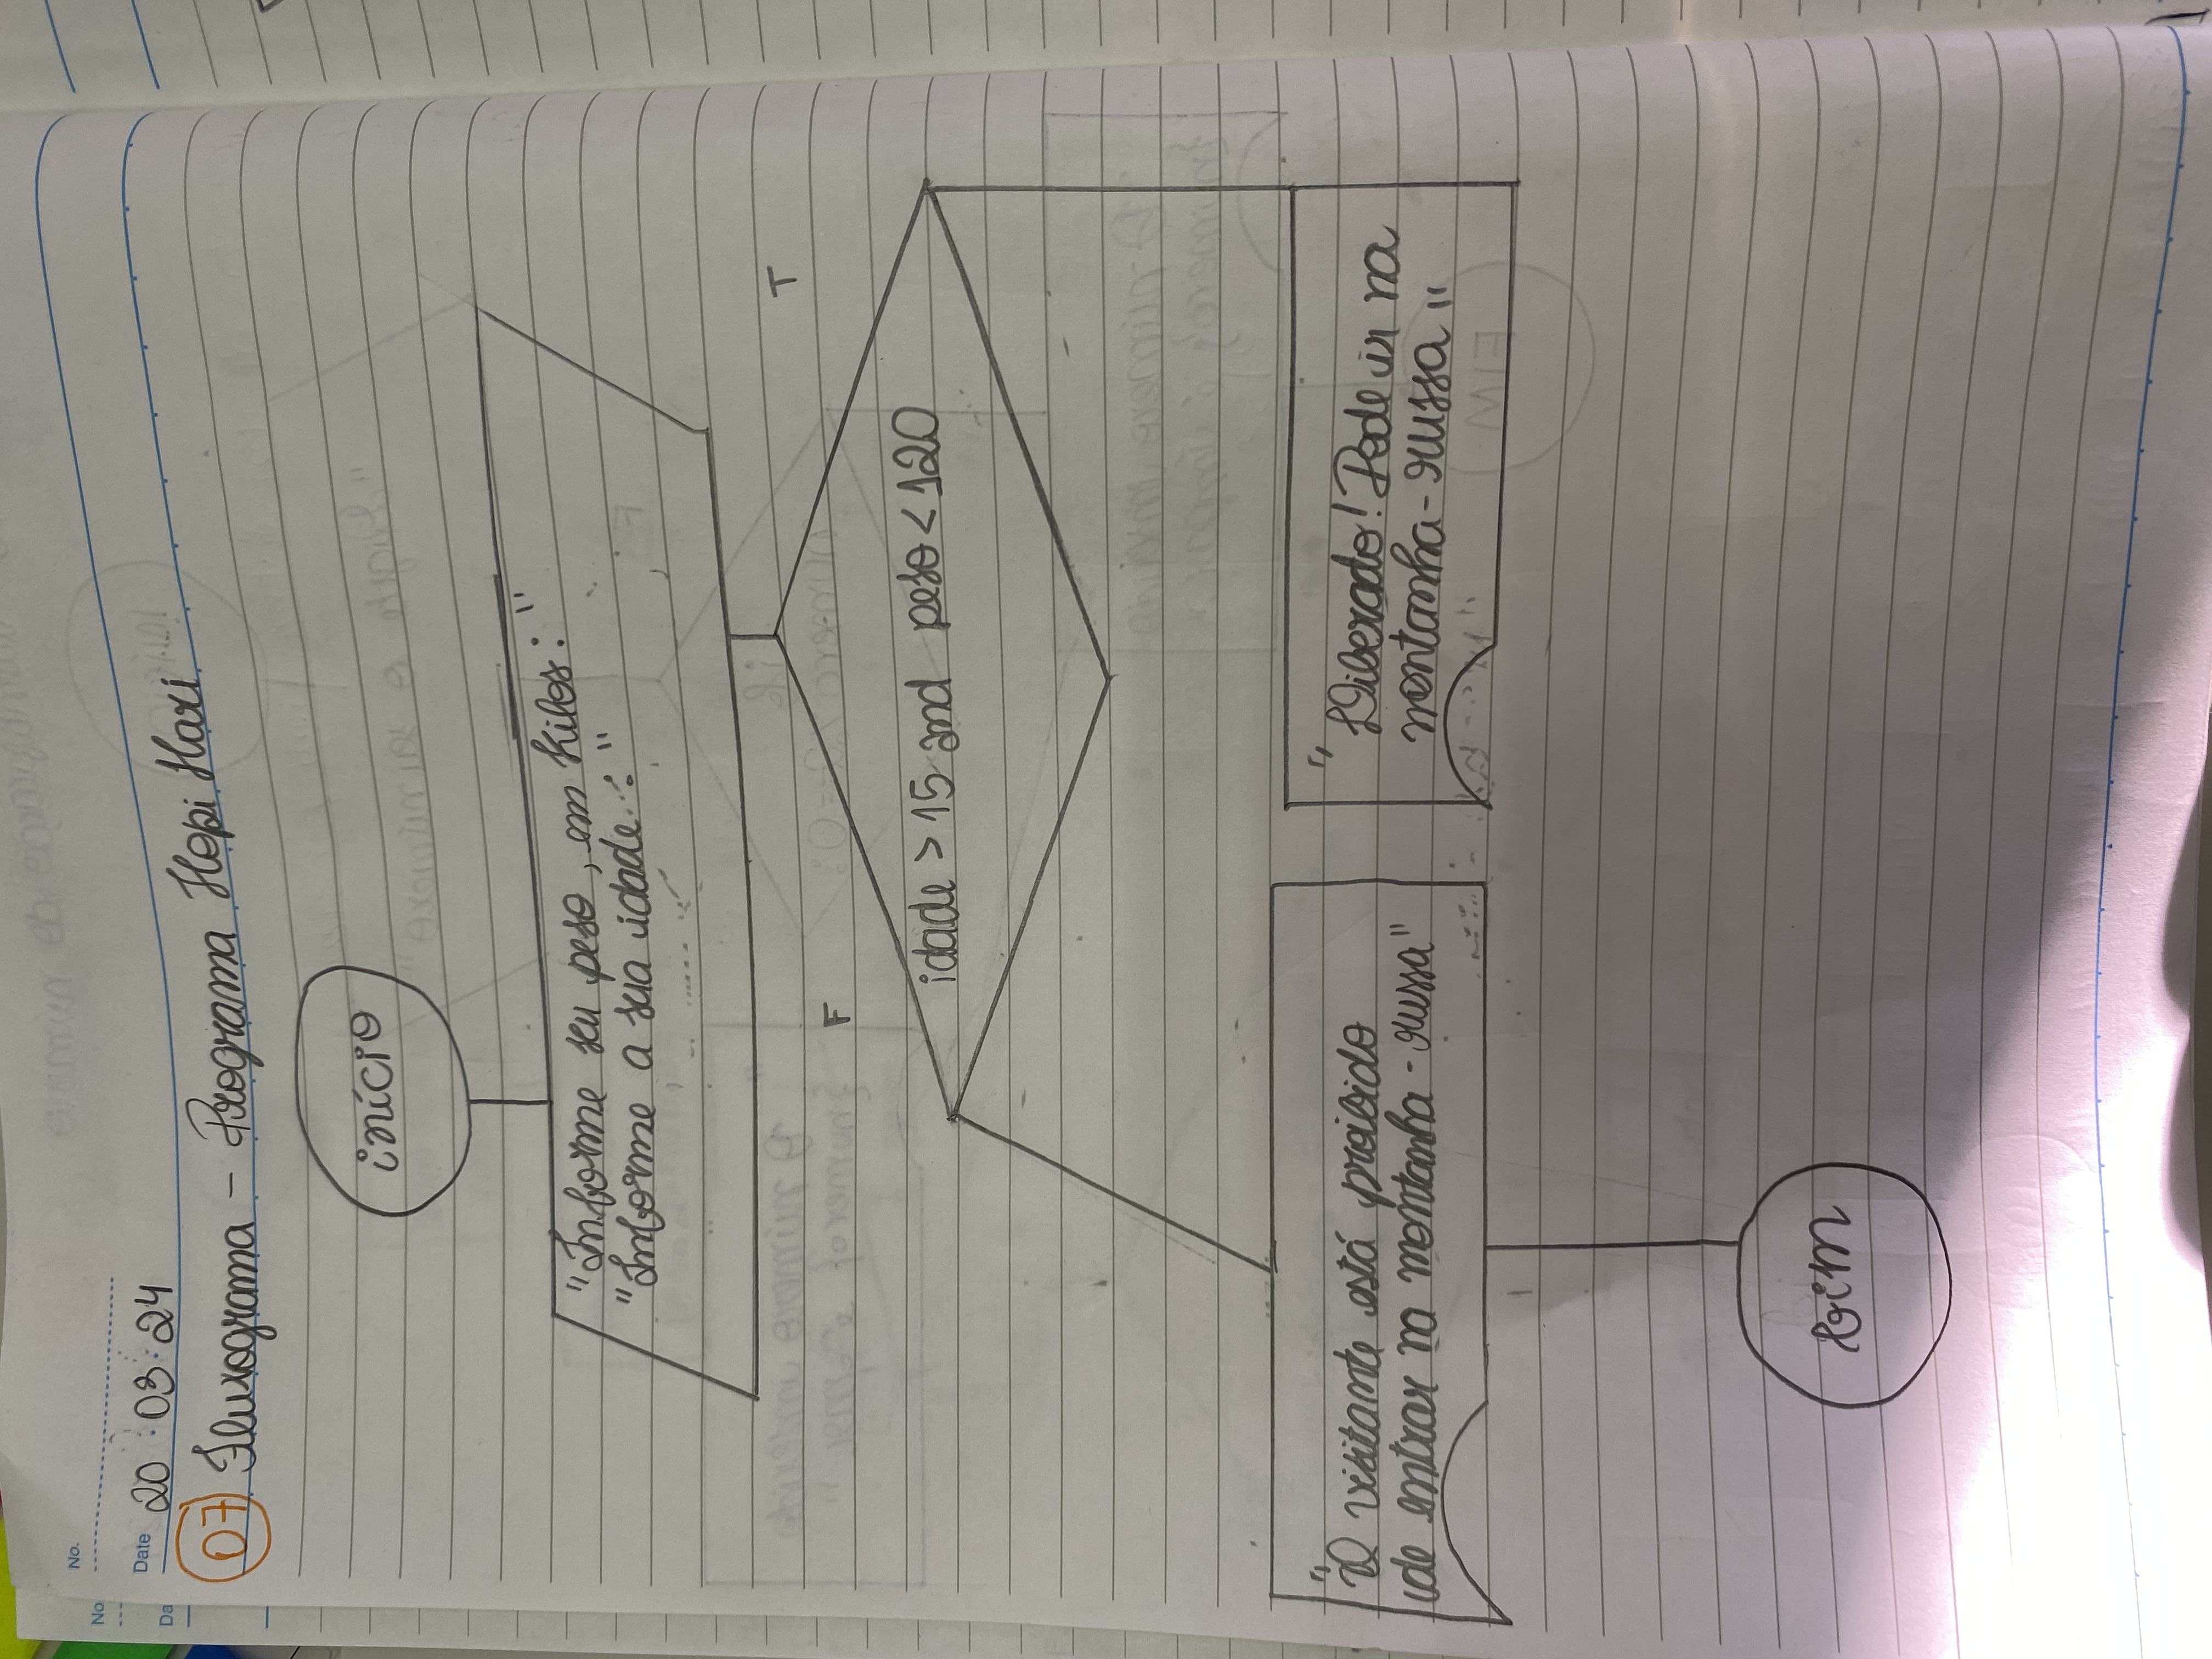 No.
No
Date 20 : 03 : 24
Da
07 Fluxograma - Programa Hopi Hari
início
"Informe seu peso, em Kilos: "
"Informe a sua idade : "
T
F
idade > 15 and peso < 120
"O visitante está proibido
de entrar na montanha-russa"
"Liberado! Pode ir na
montanha-russa"
fim